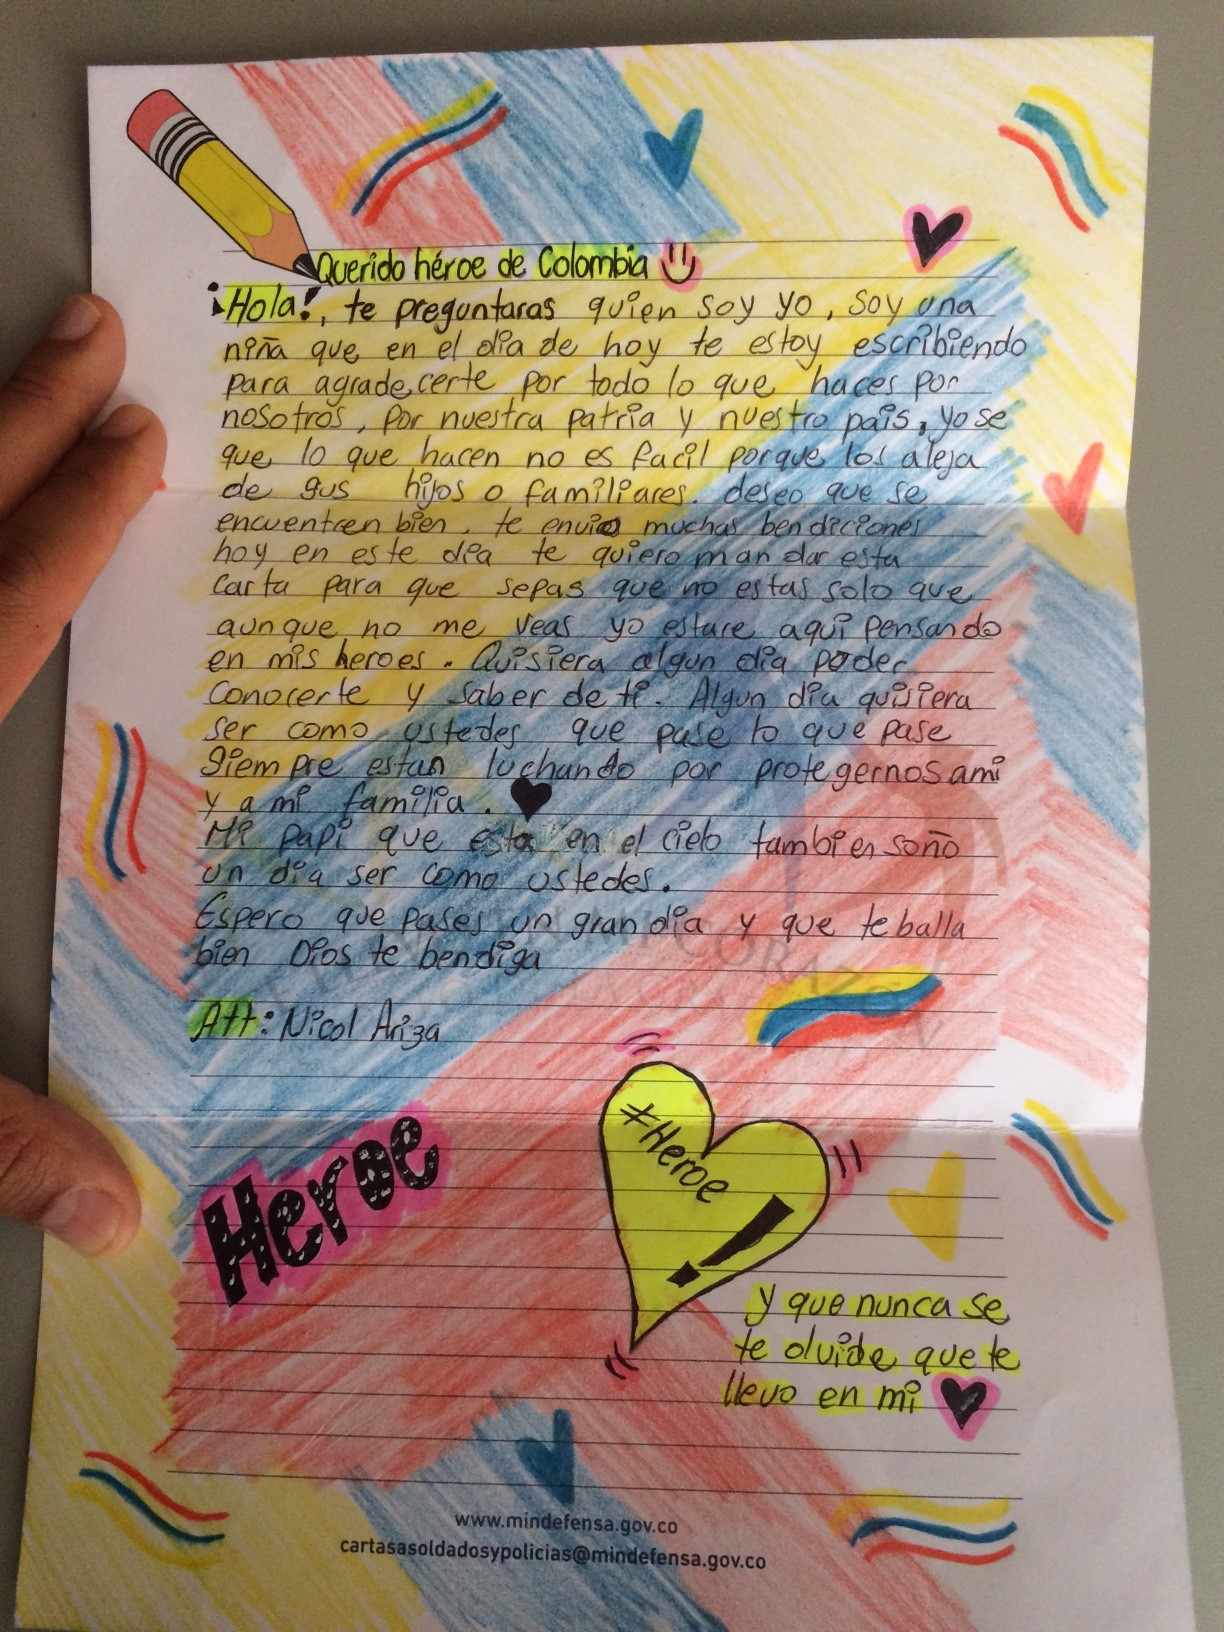 Querido héroe de Colombia
¡Hola!, te preguntaras quien soy yo, soy una
niña que en el dia de hoy te estoy escribiendo
para agradecerte por todo lo que haces por
nosotros, por nuestra patria y nuestro pais, yo se
que lo que hacen no es facil porque los aleja
de sus hijos o familiares. deseo que se
encuentren bien, te envio muchas bendiciones
hoy en este dia te quiero mandar esta
carta para que sepas que no estas solo que
aunque no me veas yo estare aqui pensando
en mis heroes. Quisiera algun dia poder
conocerte y saber de ti. Algun dia quisiera
ser como ustedes que pase lo que pase
Siempre estan luchando por protegernos ami
y a mi familia.
Mi papi que esta en el cielo tambien soño
un dia ser como ustedes.
Espero que pases un gran dia y que te balla
bien Dios te bendiga
CORAZÓN
Att: Nicol Ariza
Heroe
#Heroe
!
y que nunca se
te olvide que te
llevo en mi
www.mindefensa.gov.co
cartasasoldadosypolicias@mindefensa.gov.co